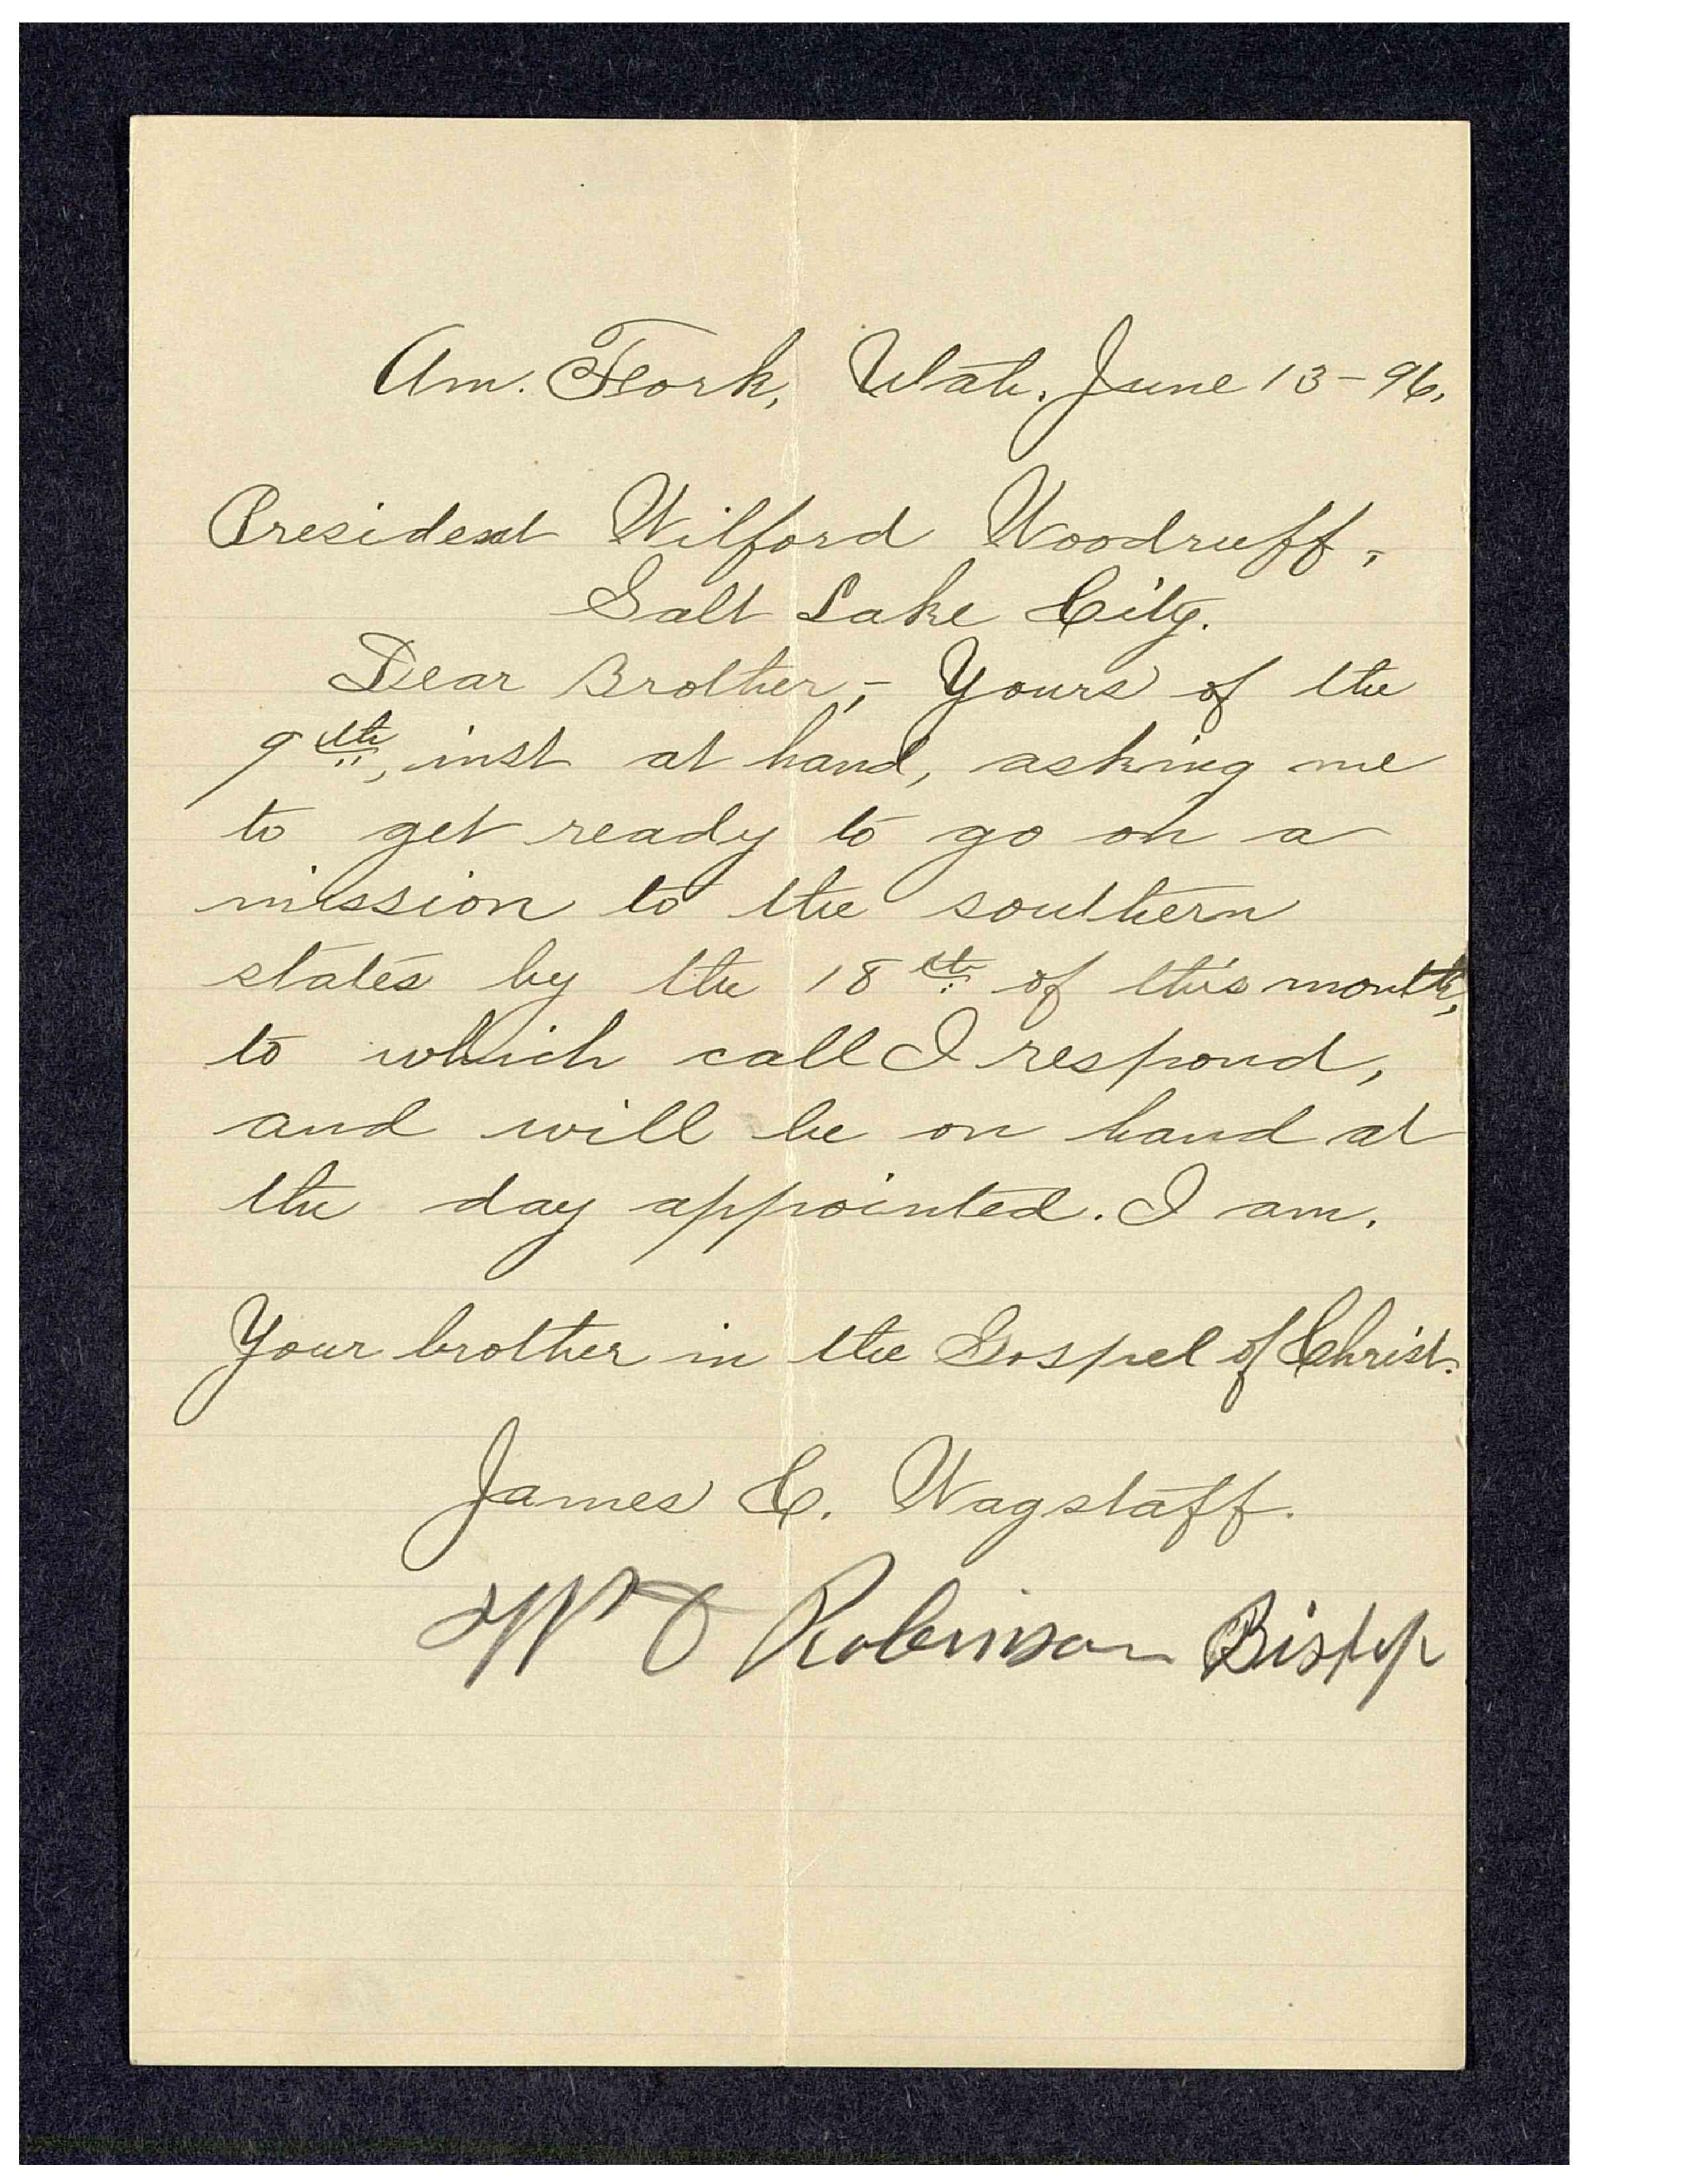 Am. Fork, Utah. June 13-96.
President Wilford Woodruff,
Salt Lake City.
Dear Brother,- Yours of the
9th, inst at hand, asking me
to get ready to go on a
mission to the southern
states by the 18th of this month,
to which call I respond,
and will be on hand at
the day appointed. I am.
Your brother in the Gospel of Christ.
James C. Wagstaff.
Robinson Bishop